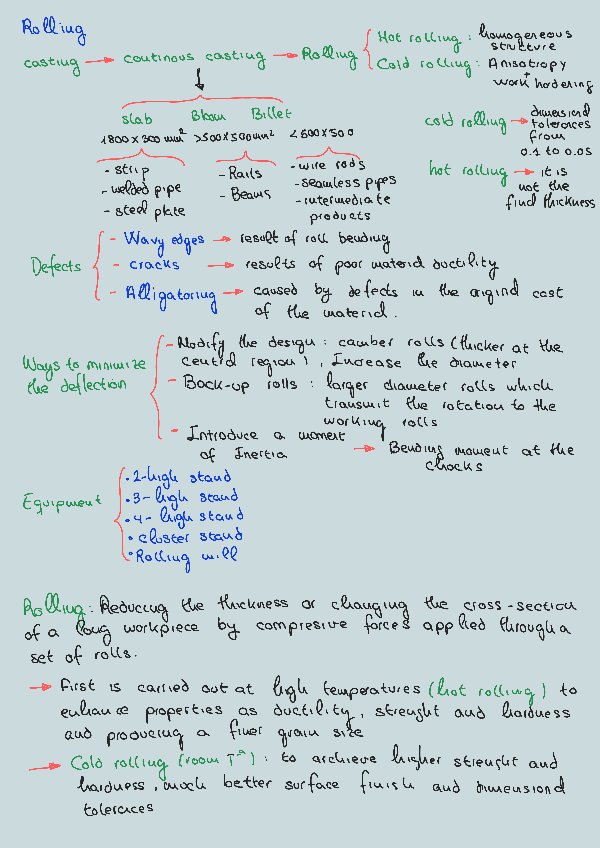 Rolling
casting → coutinous casting → Rolling
Hot rolling : homogeneous
structure
Cold rolling : Anisotropy
+
work hodering
slab Bloom Billet
1800 x 300 mm² >500x500mm² <500x500
- strip
- welded pipe
- steel plate
- Rails
- Beams
- wire rods
- seamless pipes
- intermediate
products
cold rolling → dimensiond
tolerences
from
0.1 to 0.05
hot rolling → it is
not the
find thickness
Defects
- Wavy edges → result of roll bending
- cracks → results of poor materid ductility
- Alligatoring → caused by defects in the origind cast
of the materid.
Ways to minimize
the deflection
- Modify the design : camber rolls (thicker at the
centrd region), Increase the diameter
- Back-up rolls : larger diameter rolls which
transmit the rotation to the
working rolls
- Introduce a moment
of Inertia → Bending moment at the
chocks
Equipment
• 2-high stand
• 3-high stand
• 4-high stand
• cluster stand
• Rolling mill
Rolling : Reducing the thickness or changing the cross-section
of a long workpiece by compresive forces applied through a
set of rolls.
→ First is carried out at high temperatures (hot rolling) to
enhance properties as ductility, strenght and hardness
and producing a finer grain size
→ Cold rolling (room Tª) : to archieve higher strenght and
hardness, much better surface finish and dimensiond
tolerances